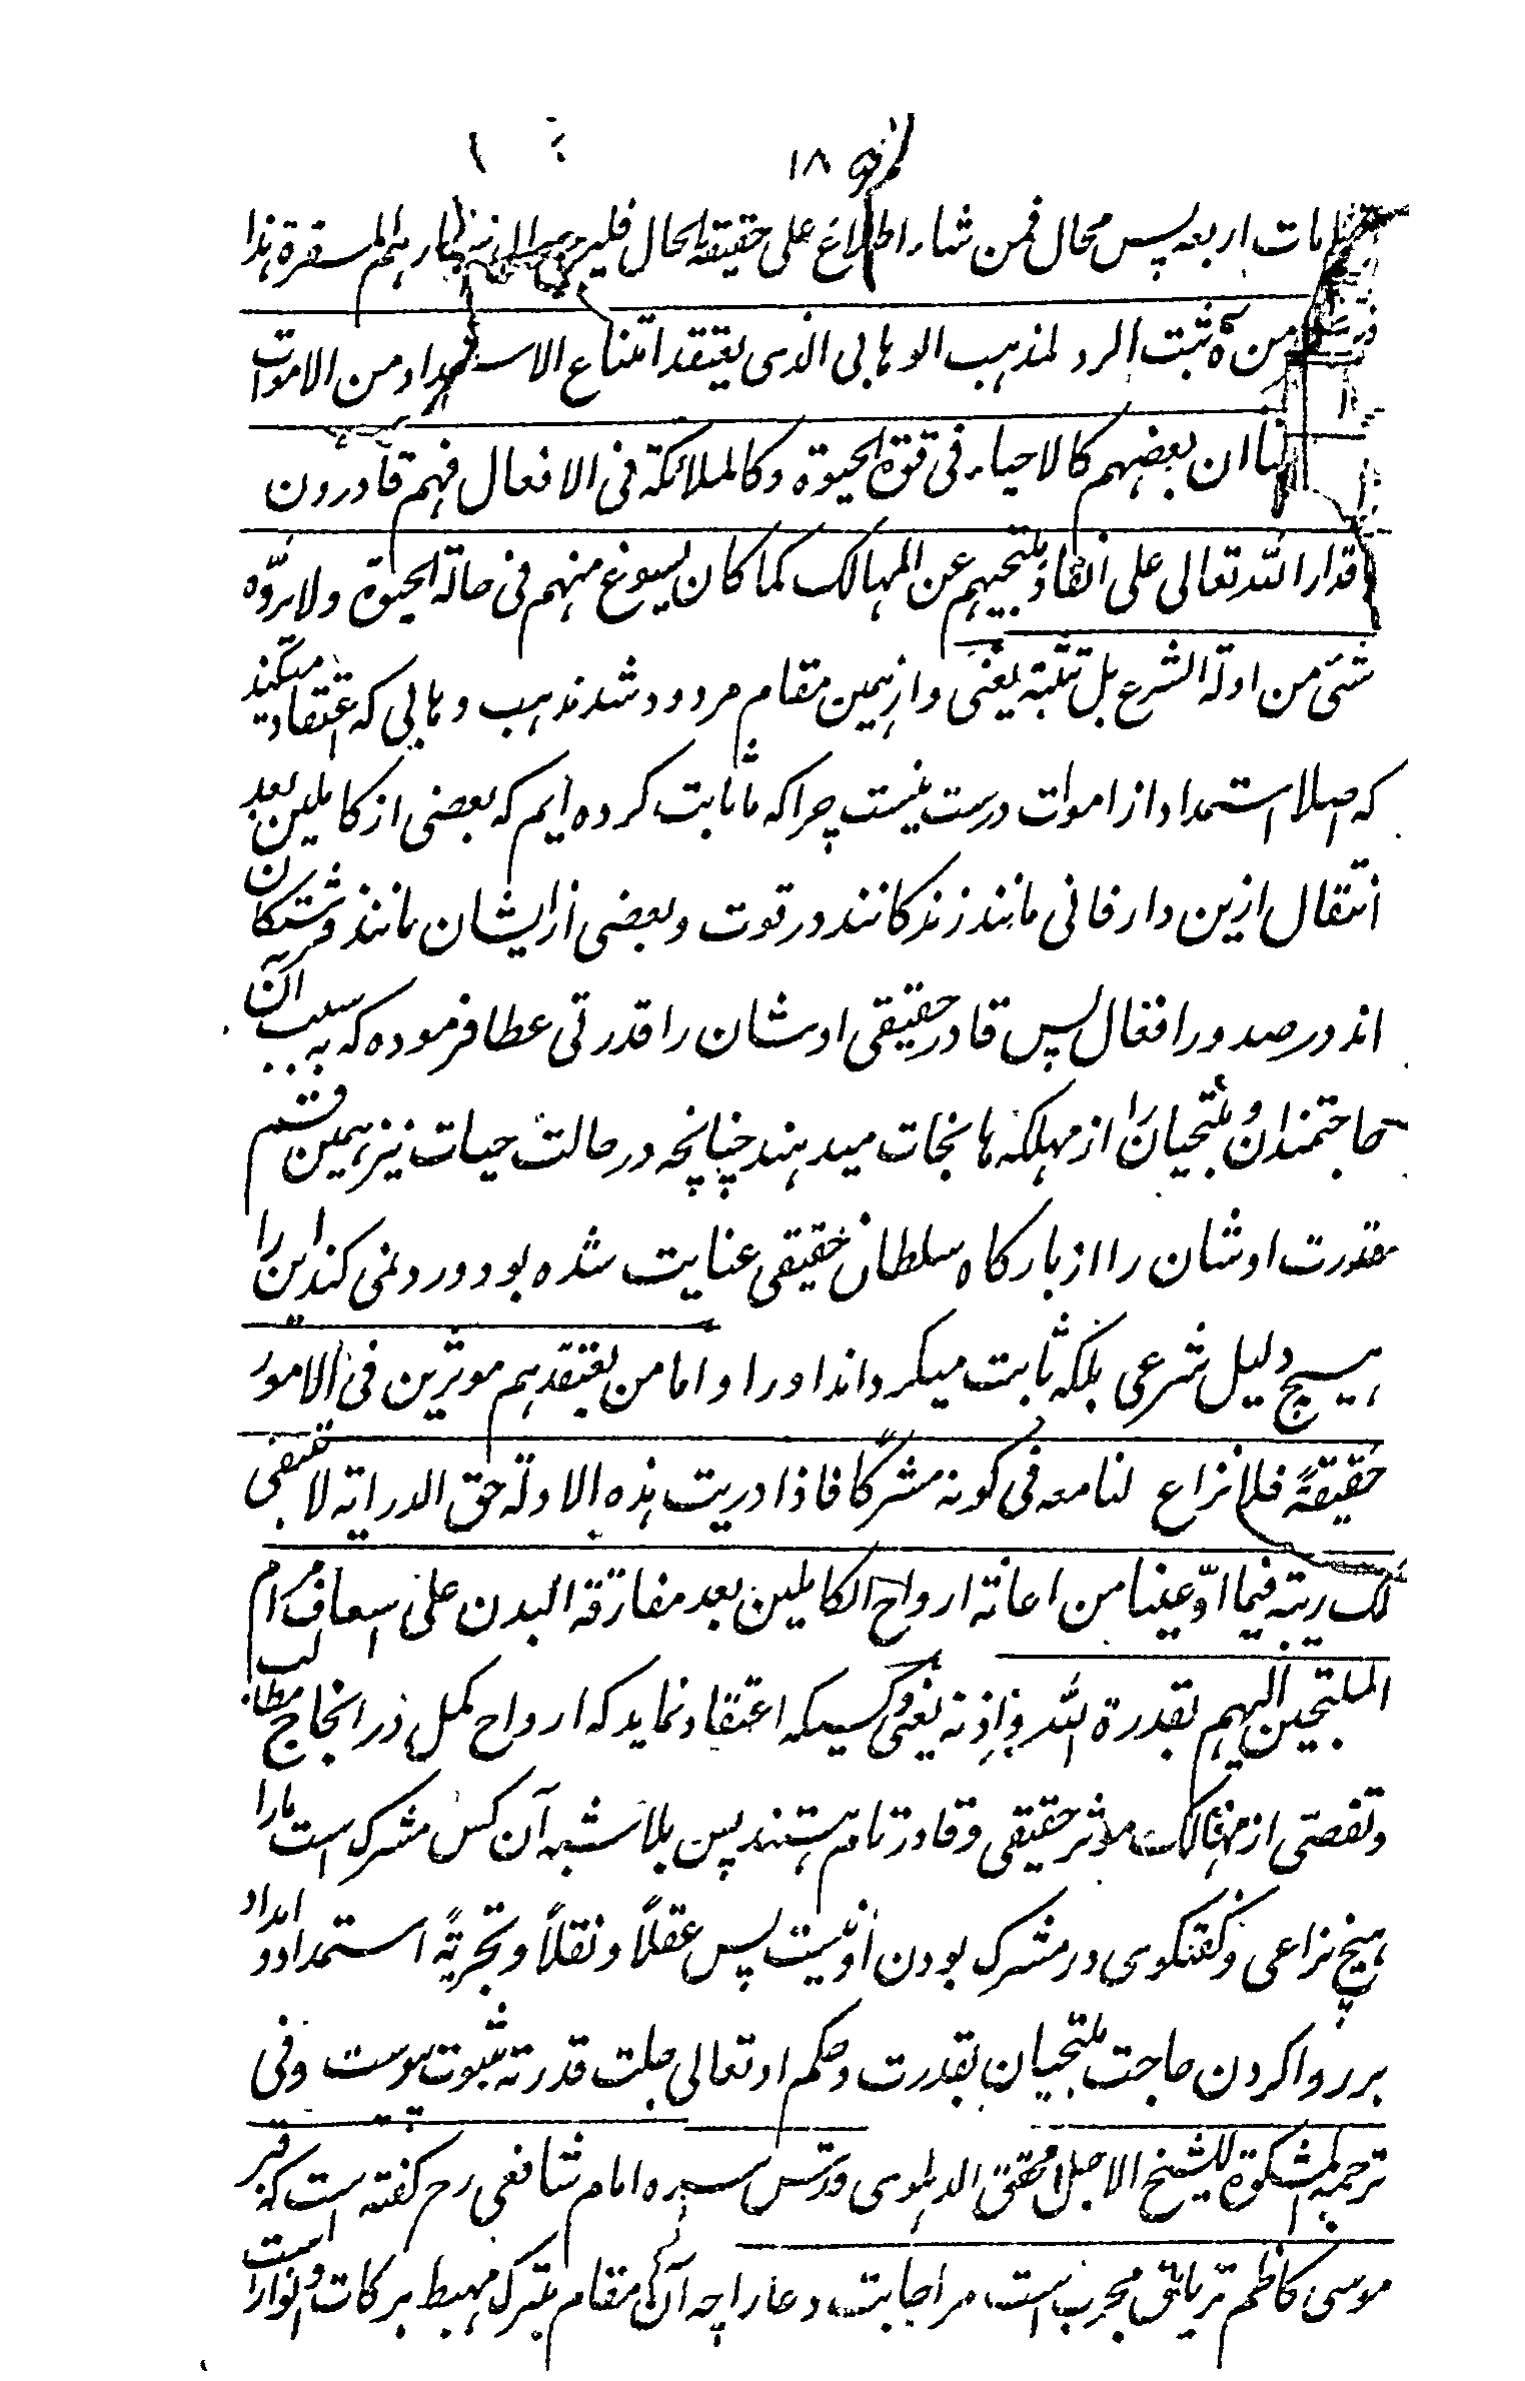 ۱۸
مات اربعه پس محال فمن شاء اطلاع علی حقیقة الحال فلیرجع الی اظهارهم المسفرة هذا
من ثبت الرد لمذهب الوهابی الذی یعتقد امتناع الاستمداد من الاموات
ان بعضهم کالاحیاء فی قوة الحیوة وکالملائکة فی الافعال فهم قادرون
قدار الله تعالی علی انقاذ ملتجیهم عن المهالک کما کان یسوغ منهم فی حالة الحیوة ولا یرده
شیٔ من ادلة الشرع بل تثبته یعنی و ازهمین مقام مردود شد مذهب وهابی که اعتقاد میکند
که اصلا استمداد از اموات درست نیست چرا که ما ثابت کرده ایم که بعضی از کاملین بعد
انتقال ازین دار فانی مانند زندکانند در قوت و بعضی از ایشان مانند فرشتکان
اند در صدور افعال پس قادر حقیقی اوشان را قدرتی عطا فرموده که به سبب آن
حاجتمندان و ملتجیان را از مهلکه ها نجات میدهند چنانچه در حالت حیات نیز همین قسم
مقدرت اوشان را از بارکاه سلطان حقیقی عنایت شده بود و رد نمی کند این را
هیچ دلیل شرعی بلکه ثابت میکرداند اورا و اما من یعتقدهم موثرین فی الامور
حقیقةً فلا نزاع لنا معه فی کونه مشرکًا فاذا دریت هذه الادلة حق الدرایة لا تبقی
لک ریبة فیما ادّعینا من اعانة ارواح الکاملین بعد مفارقة البدن علی اسعاف مرام
الملتجین الیهم بقدرة الله واذنه یعنی و کسیکه اعتقاد نماید که ارواح کمل در انجاح مطالب
و تفصّی از مهالک موثر حقیقی و قادر تام هستند پس بلا شبه آن کس مشرک است مارا
هیچ نزاعی و کفتکوی در مشرک بودن او نیست پس عقلاً و نقلاً و تجربةً استمداد و امداد
بر روا کردن حاجت ملتجیان بقدرت و حکم او تعالی جلت قدرته بثبوت پیوست و فی
ترجمة المشکوة للشیخ الاجل المحقق الدهلوی قدس سره امام شافعی رح کفته است که قبر
موسی کاظم تریاق مجرب است مر اجابت دعا را چه آن مقام متبرک مهبط برکات و انوار است